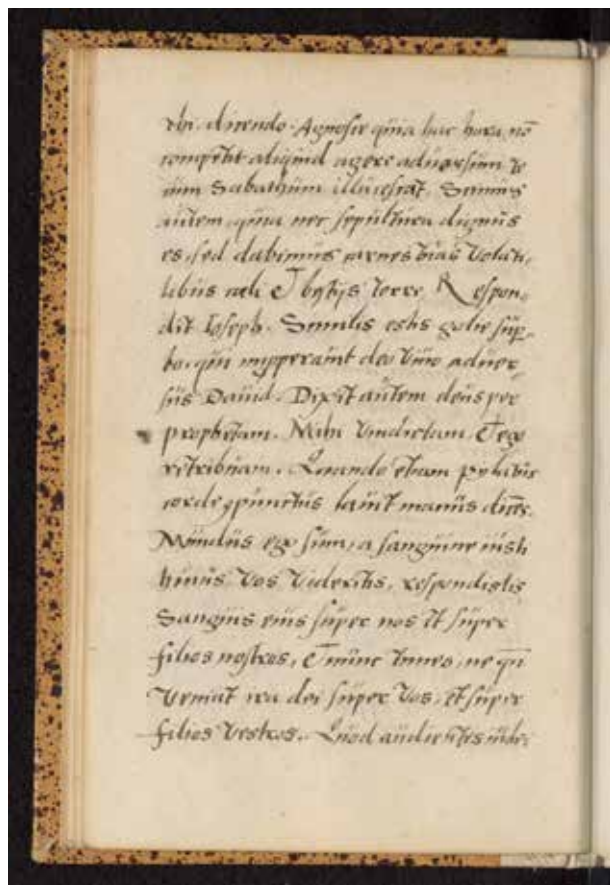 ei dicendo. Agnosce quia hac hora nō
competit aliquid agere aduersum te
cum Sabathum illucescat. Scimus
autem quia nec sepultura dignus
es, sed dabimus carnes tuas Volati,
libus celi Et bestijs terre. Respon,
dit Ioseph. Similis estis golie sup,
bo, qui deo viuo aduer
sus Dauid. Dixit autem deus per
prophetam. Mihi Vindictam, Et ego
retribuam. Quando etiam pylatus
corde cpunctus lauit manus dices.
Mundus ego sum, a sanguine iusti
huius Vos Videritis, respondistis
Sanguis eius super nos Et super
filios nostros, Et nunc timeo, ne qn
Veniat ira dei super Vos, et super
filios Vestros. Quod audientes iudei